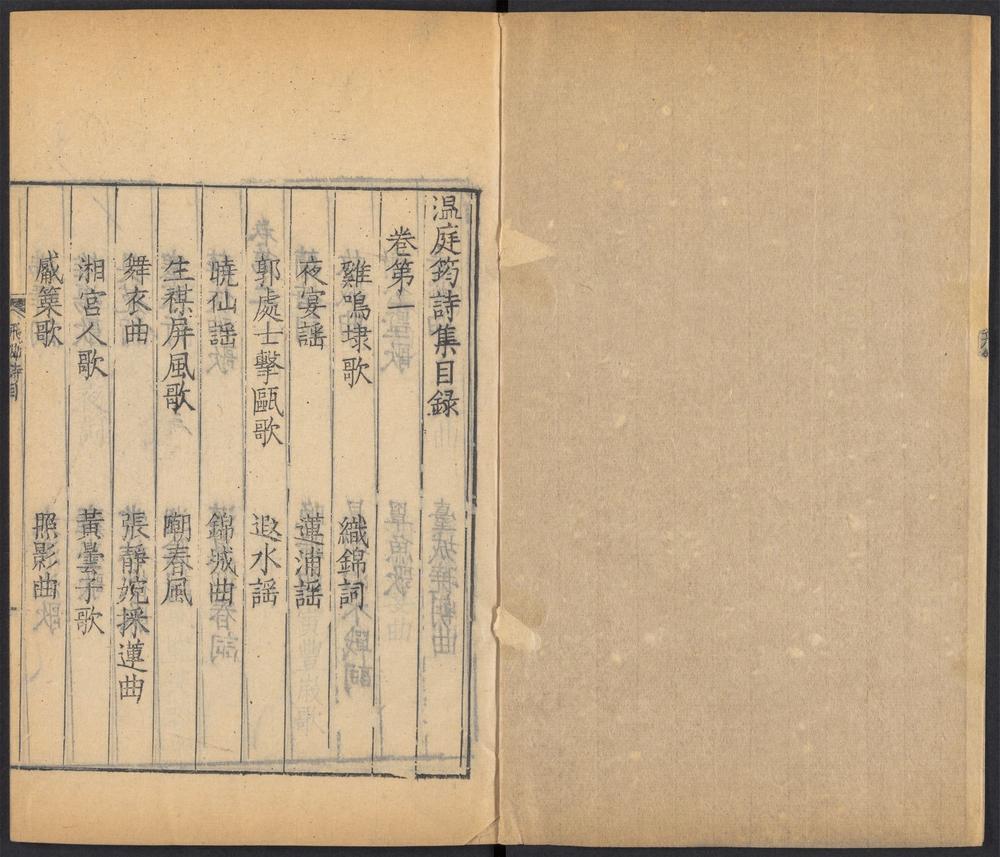 温庭筠詩集目録
卷第一
雞鳴埭歌 織錦詞
夜宴謡 蓮浦謡
郭處士擊甌歌 遐水謡
曉仙謡 錦城曲
生禖屏風歌 嘲春風
舞衣曲 張静婉採蓮曲
湘宮人歌 黃曇子歌
觱篥歌 照影曲